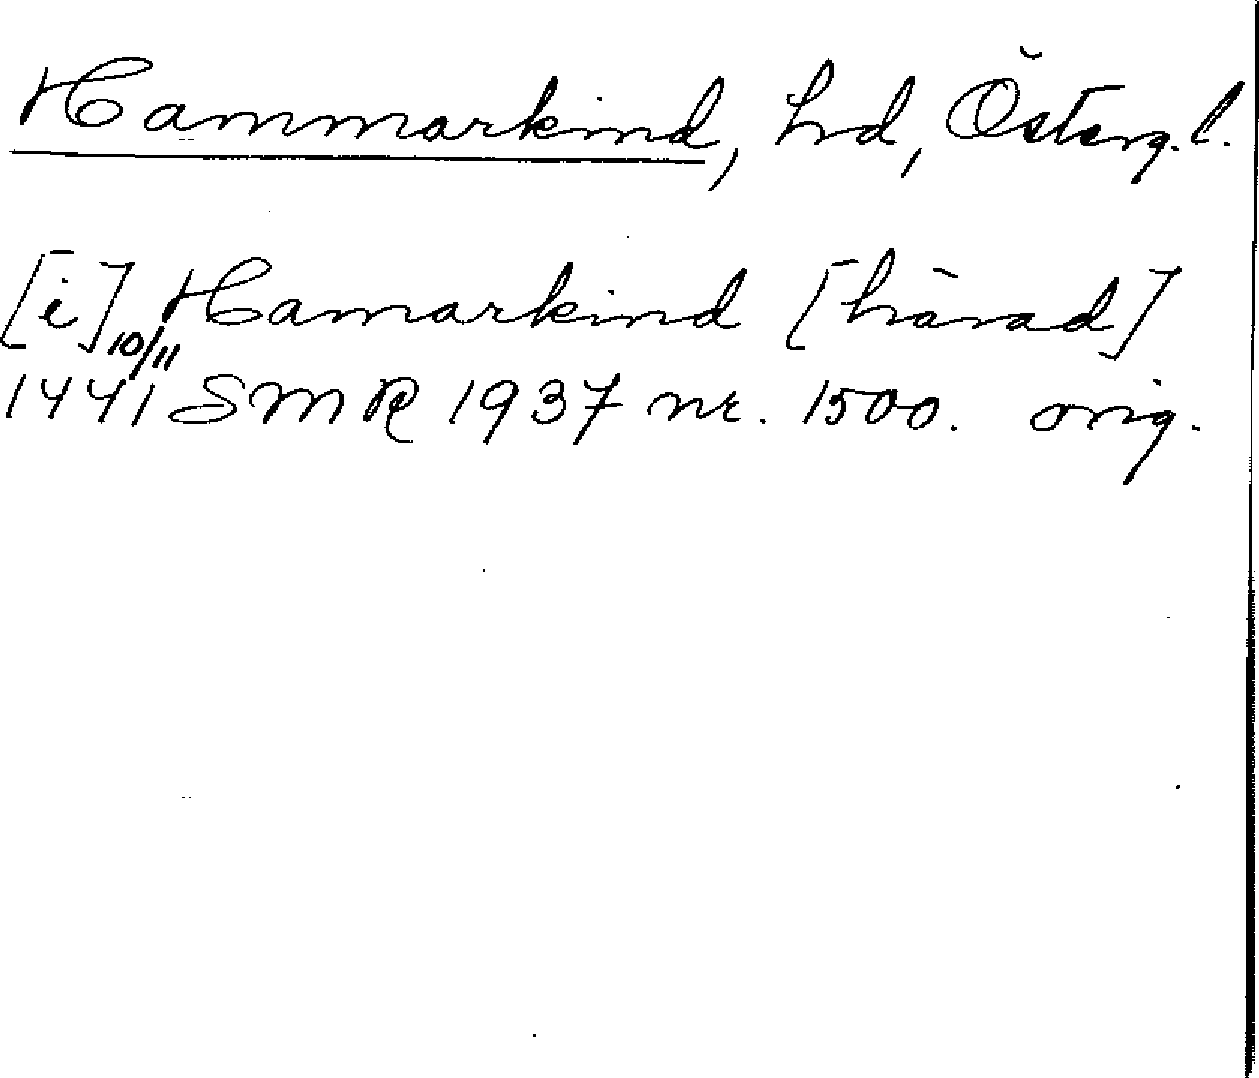 Hammarkind, hd, Österg. l.
[i] Hamarkind [härad]
10/11
1441 SMR 1937 nr. 1500. orig.